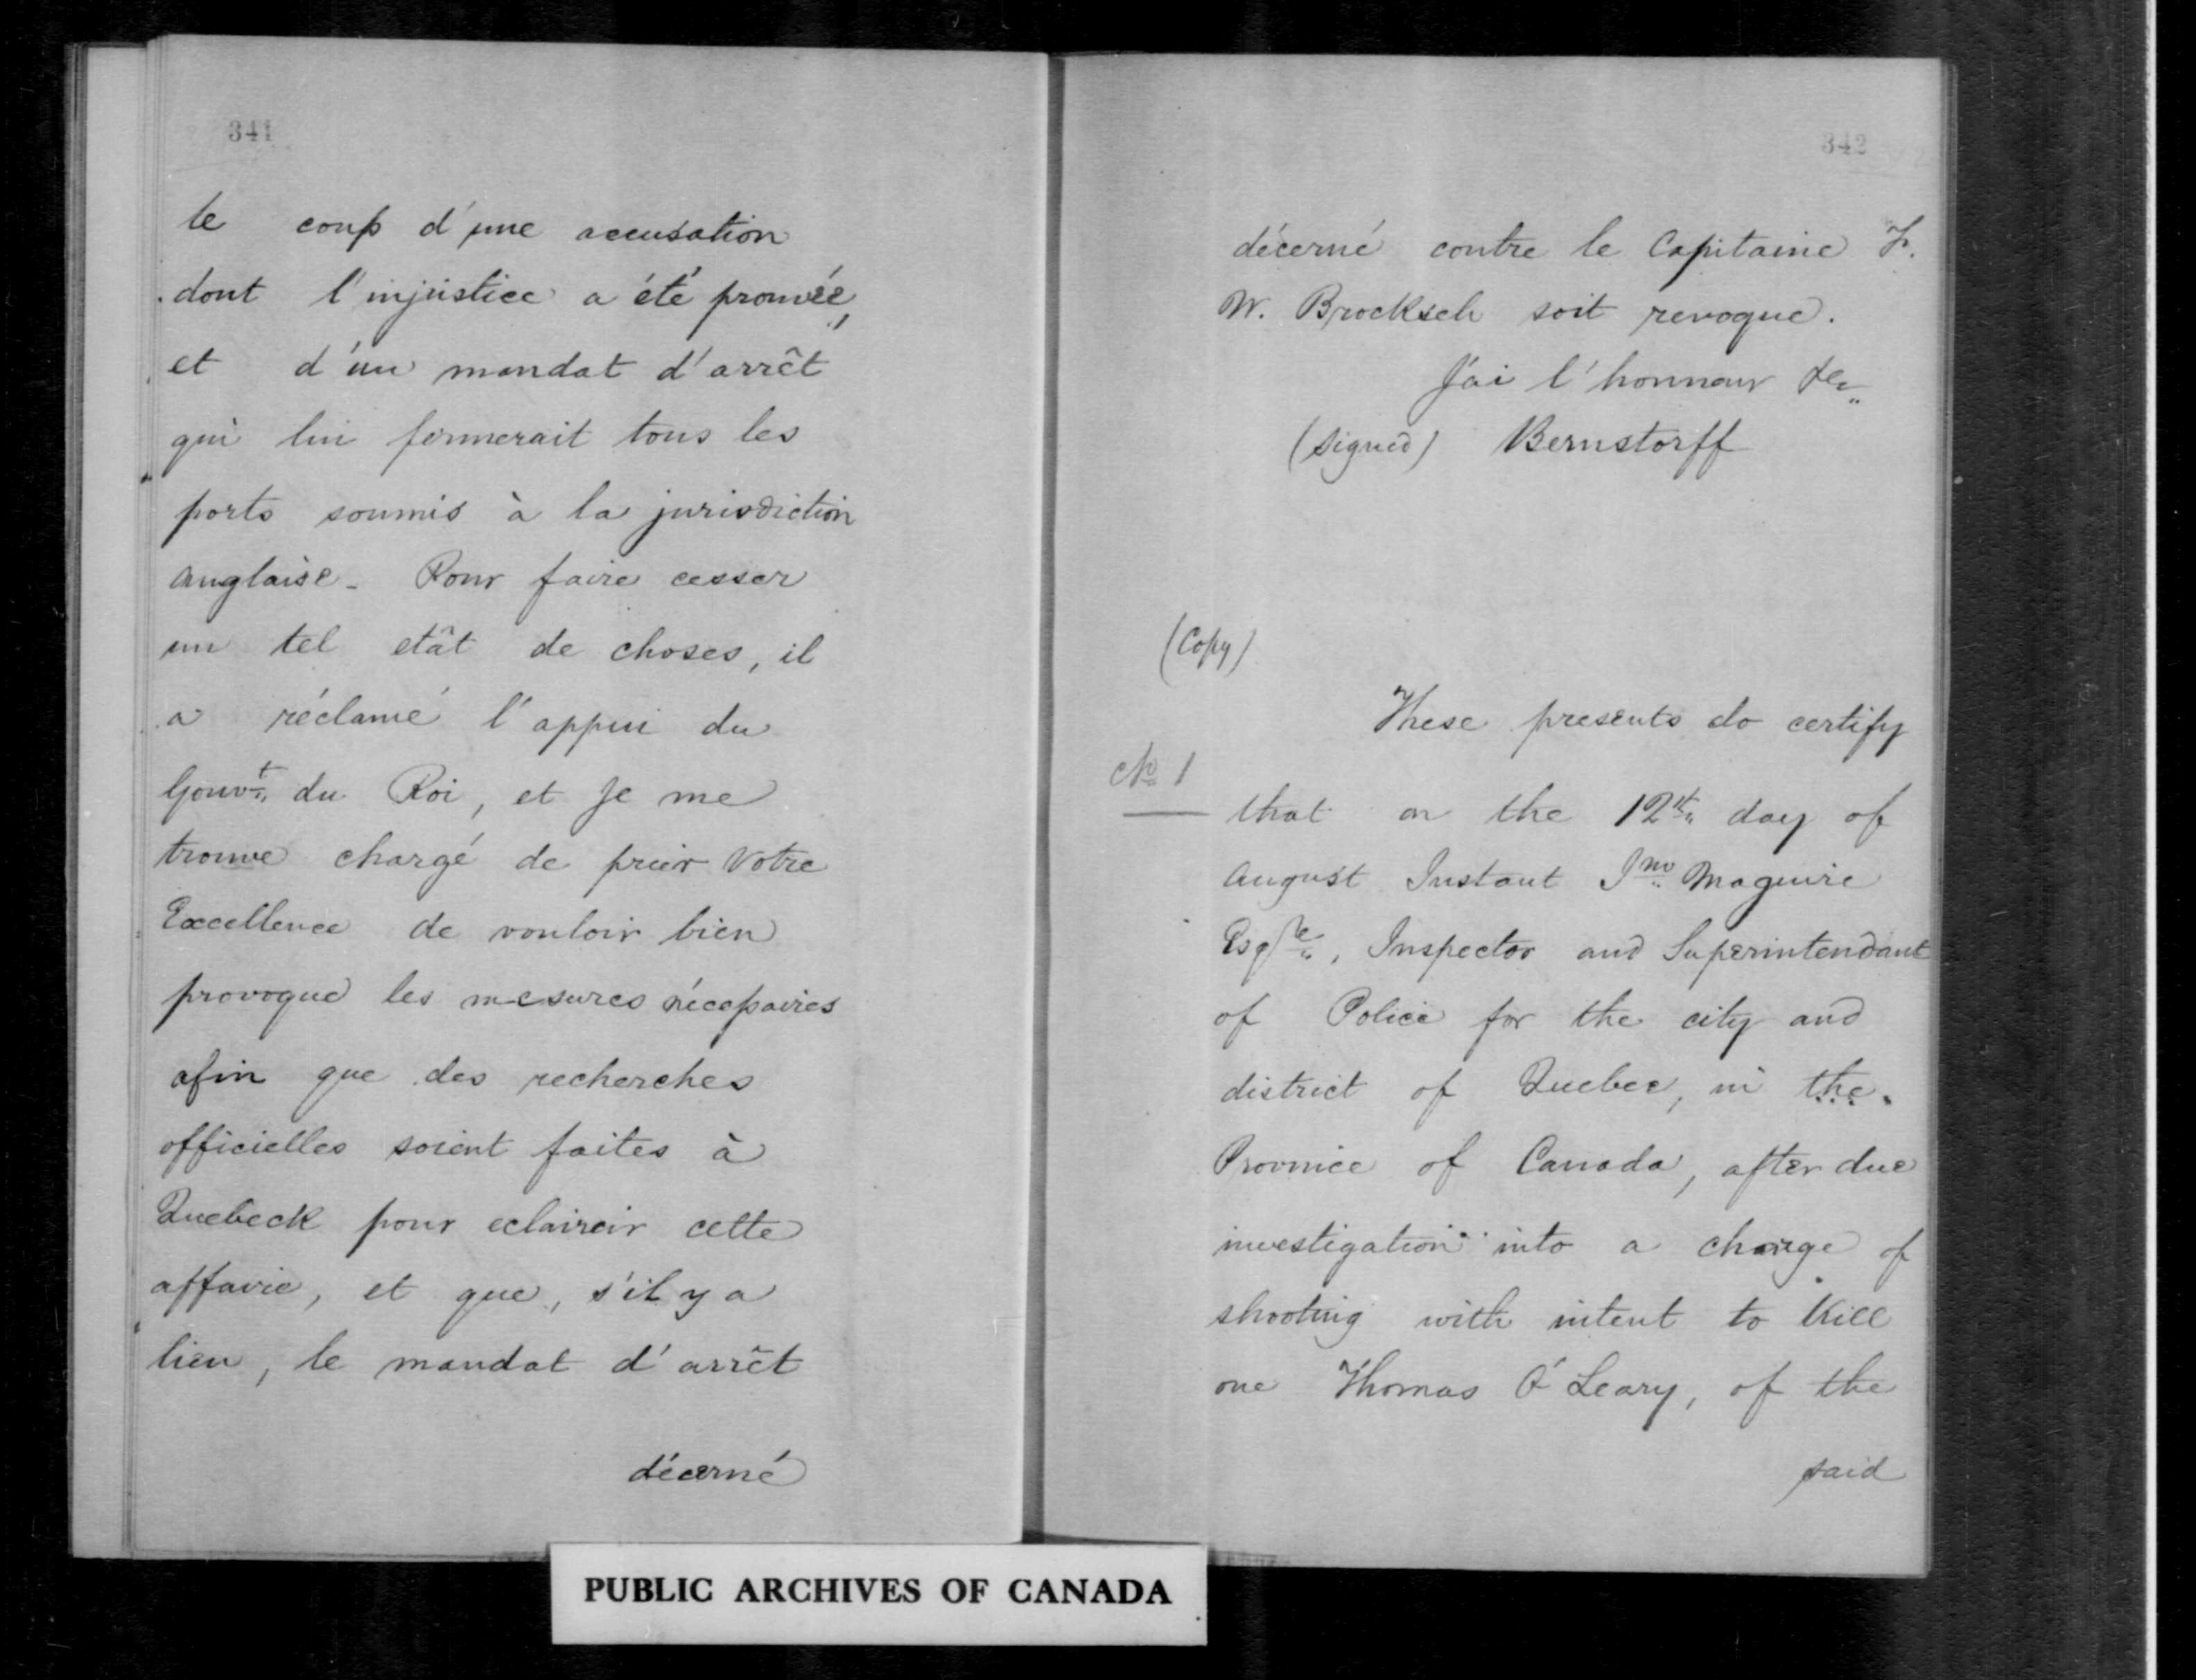 341
le coup d'une accusation
dont l'injustice a été prouvée,
et d'un mandat d'arrêt
qui lui fermerait tous les
ports soumis à la jurisdiction
anglaise - Pour faire cesser
un tel etât de choses, il
a réclamé l'appui du
Gouvt. du Roi, et je me
trouve chargé de prier Votre
Excellence de vouloir bien
provoque les mesures nécessaires
afin que des recherches
officielles soient faites à
Quebeck pour eclaircir cette
affavie, et que, s'il y a
lieu, le mandat d'arrêt
décerné
342
décerné contre le Capitaine F.
W. Brocksch soit revoque.
J'ai l'honneur &c.
(signed) Bernstorff
(Copy)
These presents do certify
No 1
that on the 12th day of
August Instant Jno Maguire
Esqre, Inspector and Superintendant
of Police for the city and
district of Quebec, in the
Province of Canada, after due
investigation into a charge of
shooting with intent to Kill
one Thomas O'Leary, of the
said
PUBLIC ARCHIVES OF CANADA